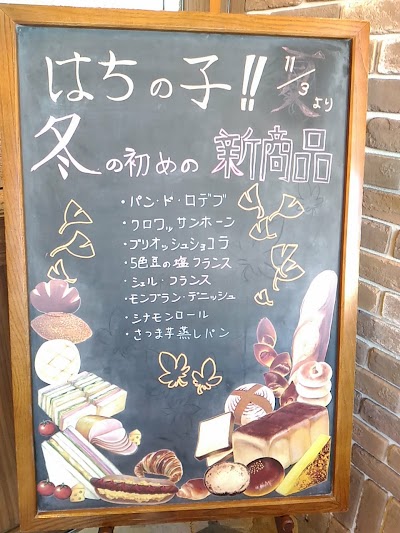 はちの子!! 11/3より
冬の初めの 新商品
・パン・ド・ロデブ
・クロワッサンホーン
・ブリオッシュショコラ
・5色豆の塩フランス
・シェル・フランス
・モンブラン・デニッシュ
・シナモンロール
・さつま芋蒸しパン